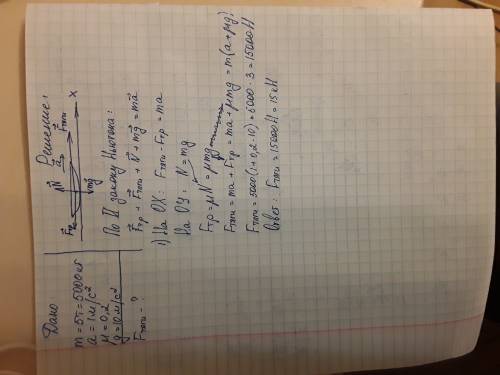 Дано
m = 5т = 5000 кг
a = 1 м/с²
μ = 0,2
g = 10 м/с²
Fтяги - ?
Решение:
N a Fтяги
Fтр mg X
По II закону Ньютона:
Fтр + Fтяги + N + mg = ma
1) На ОХ: Fтяги - Fтр = ma
На ОУ: N = mg
Fтр = μN = μmg
Fтяги = ma + Fтр = ma + μmg = m(a + μg)
Fтяги = 5000(1 + 0,2 · 10) = 5000 · 3 = 15000 Н
Ответ: Fтяги = 15000 Н = 15 кН